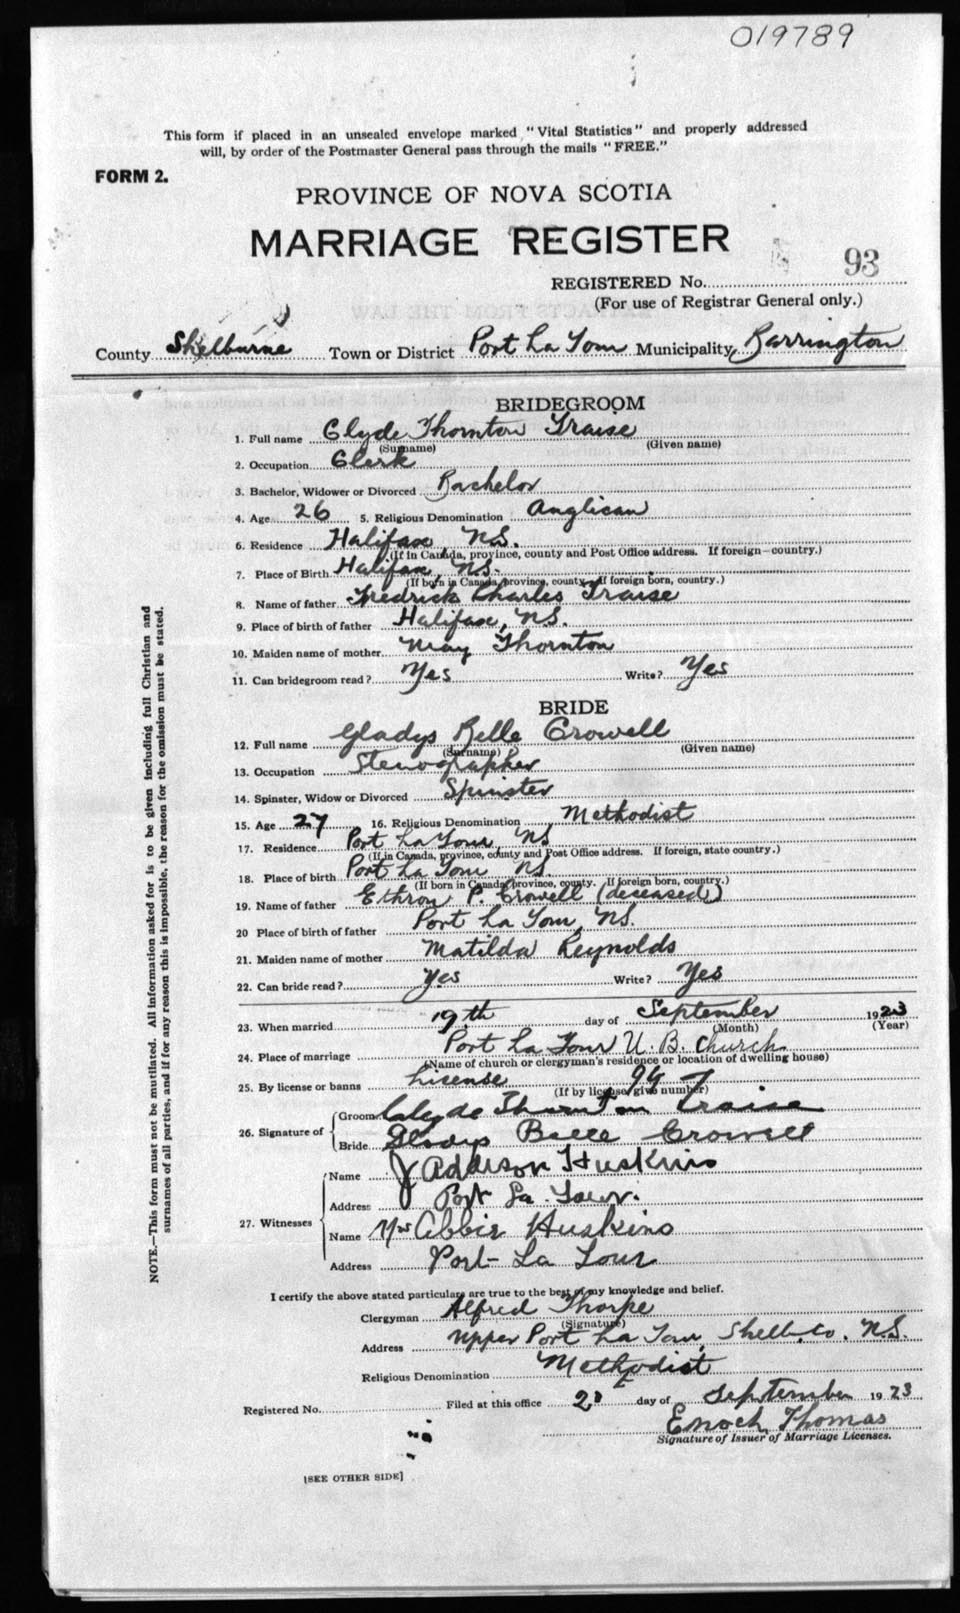 019789
This form if placed in an unsealed envelope marked "Vital Statistics" and properly addressed
will, by order of the Postmaster General pass through the mails "FREE."
FORM 2.
PROVINCE OF NOVA SCOTIA
MARRIAGE REGISTER
REGISTERED No. 93
(For use of Registrar General only.)
County Shelburne Town or District Port La Tour Municipality Barrington
BRIDEGROOM
1. Full name Clyde Thornton Traise
(Surname) (Given name)
2. Occupation Clerk
3. Bachelor, Widower or Divorced Bachelor
4. Age 26 5. Religious Denomination Anglican
6. Residence Halifax, N.S.
(If in Canada, province, county and Post Office address. If foreign—country.)
7. Place of Birth Halifax, N.S.
(If born in Canada, province, county. If foreign born, country.)
8. Name of father Fredrick Charles Traise
9. Place of birth of father Halifax, N.S.
10. Maiden name of mother May Thornton
11. Can bridegroom read? Yes Write? Yes
BRIDE
12. Full name Gladys Belle Crowell
(Surname) (Given name)
13. Occupation Stenographer
14. Spinster, Widow or Divorced Spinster
15. Age 27 16. Religious Denomination Methodist
17. Residence Port La Tour, NS
(If in Canada, province, county and Post Office address. If foreign, state country.)
18. Place of birth Port La Tour NS.
(If born in Canada, province, county. If foreign born, country.)
19. Name of father Ethron P. Crowell (deceased)
20 Place of birth of father Port La Tour, NS.
21. Maiden name of mother Matilda Reynolds
22. Can bride read? Yes Write? Yes
23. When married 19th day of September 1923
(Month) (Year)
24. Place of marriage Port La Tour U. B. Church
(Name of church or clergyman's residence or location of dwelling house)
25. By license or banns License 947
(If by license, give number)
26. Signature of Groom Clyde Thornton Traise
Bride Gladys Belle Crowell
27. Witnesses Name J Addison Huskins
Address Port La Tour.
Name Mrs Abbie Huskins
Address Port La Tour
I certify the above stated particulars are true to the best of my knowledge and belief.
Clergyman Alfred Thorpe
(Signature)
Address Upper Port La Tour, Shelb. Co. N.S.
Religious Denomination Methodist
Registered No. Filed at this office day of September 1923
Enoch Thomas
Signature of Issuer of Marriage Licenses.
[SEE OTHER SIDE]
NOTE.—This form must not be mutilated. All information asked for is to be given including full Christian and
surnames of all parties, and if for any reason this is impossible, the reason for the omission must be stated.